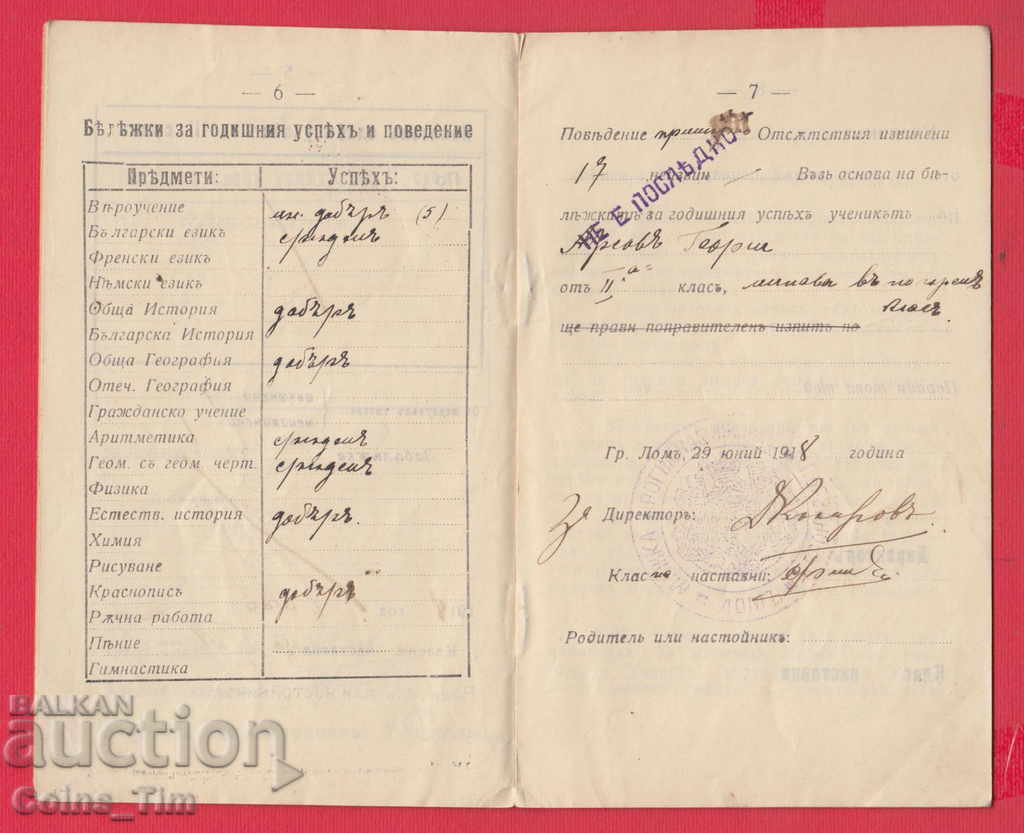 — 6 —
Бѣлѣжки за годишния успѣхъ и поведение
Прѣдмети: Успѣхъ:
Вѣроучение мн. добъръ (5)
Български езикъ срѣденъ
Френски езикъ
Нѣмски езикъ
Обща История добъръ
Българска История
Обща География добъръ
Отеч. География
Гражданско учение
Аритметика срѣденъ
Геом. съ геом. черт. срѣденъ
Физика
Естеств. история добъръ
Химия
Рисуване
Краснопись добъръ
Рѫчна работа
Пѣние
Гимнастика
— 7 —
Поведение Отсѫтствия извинени
17 неизвин — Възъ основа на бѣ-
лѣжкитѣ за годишния успѣхъ ученикътъ
НЕ Е ПОСЛѢДНО
Арсовъ Георги
отъ II а класъ, минава въ по горенъ
класъ
ще прави поправителенъ изпитъ по
Гр. Ломъ, 29 юний 1918 година
За Директоръ:
Класенъ наставникъ:
Родитель или настойникъ:
BALKAN
auction
Coins_Tim